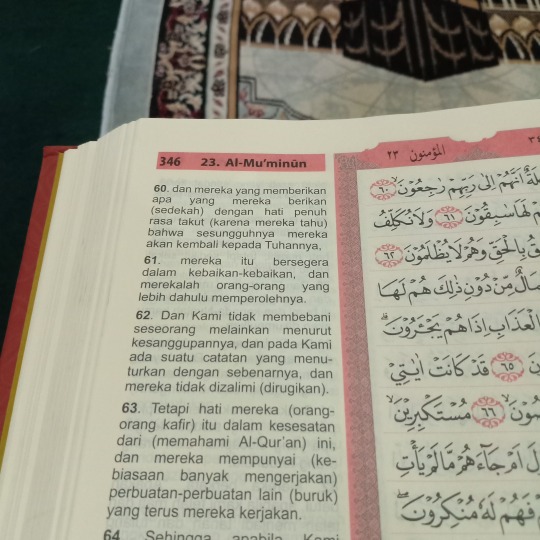 346 23. Al-Mu'minûn
60. dan mereka yang memberikan
apa yang mereka berikan
(sedekah) dengan hati penuh
rasa takut (karena mereka tahu)
bahwa sesungguhnya mereka
akan kembali kepada Tuhannya,
61. mereka itu bersegera
dalam kebaikan-kebaikan, dan
merekalah orang-orang yang
lebih dahulu memperolehnya.
62. Dan Kami tidak membebani
seseorang melainkan menurut
kesanggupannya, dan pada Kami
ada suatu catatan yang menu-
turkan dengan sebenarnya, dan
mereka tidak dizalimi (dirugikan).
63. Tetapi hati mereka (orang-
orang kafir) itu dalam kesesatan
dari (memahami Al-Qur'an) ini,
dan mereka mempunyai (ke-
biasaan banyak mengerjakan)
perbuatan-perbuatan lain (buruk)
yang terus mereka kerjakan.
64. Sehingga apabila Kami
المؤمنون ٢٣
أَنَّهُمْ إِلَىٰ رَبِّهِمْ رَاجِعُونَ ٦٠
لَهَا سَابِقُونَ ٦١ وَلَا نُكَلِّفُ
بِالْحَقِّ وَهُمْ لَا يُظْلَمُونَ ٦٢
مِّنْ دُونِ ذَٰلِكَ هُمْ لَهَا
بِالْعَذَابِ إِذَا هُمْ يَجْـَٔرُونَ
٦٥ قَدْ كَانَتْ اٰيٰتِيْ
٦٦ مُسْتَكْبِرِيْنَ
اَمْ جَاۤءَهُمْ مَّا لَمْ يَأْتِ
فَهُمْ لَهٗ مُنْكِرُوْنَ